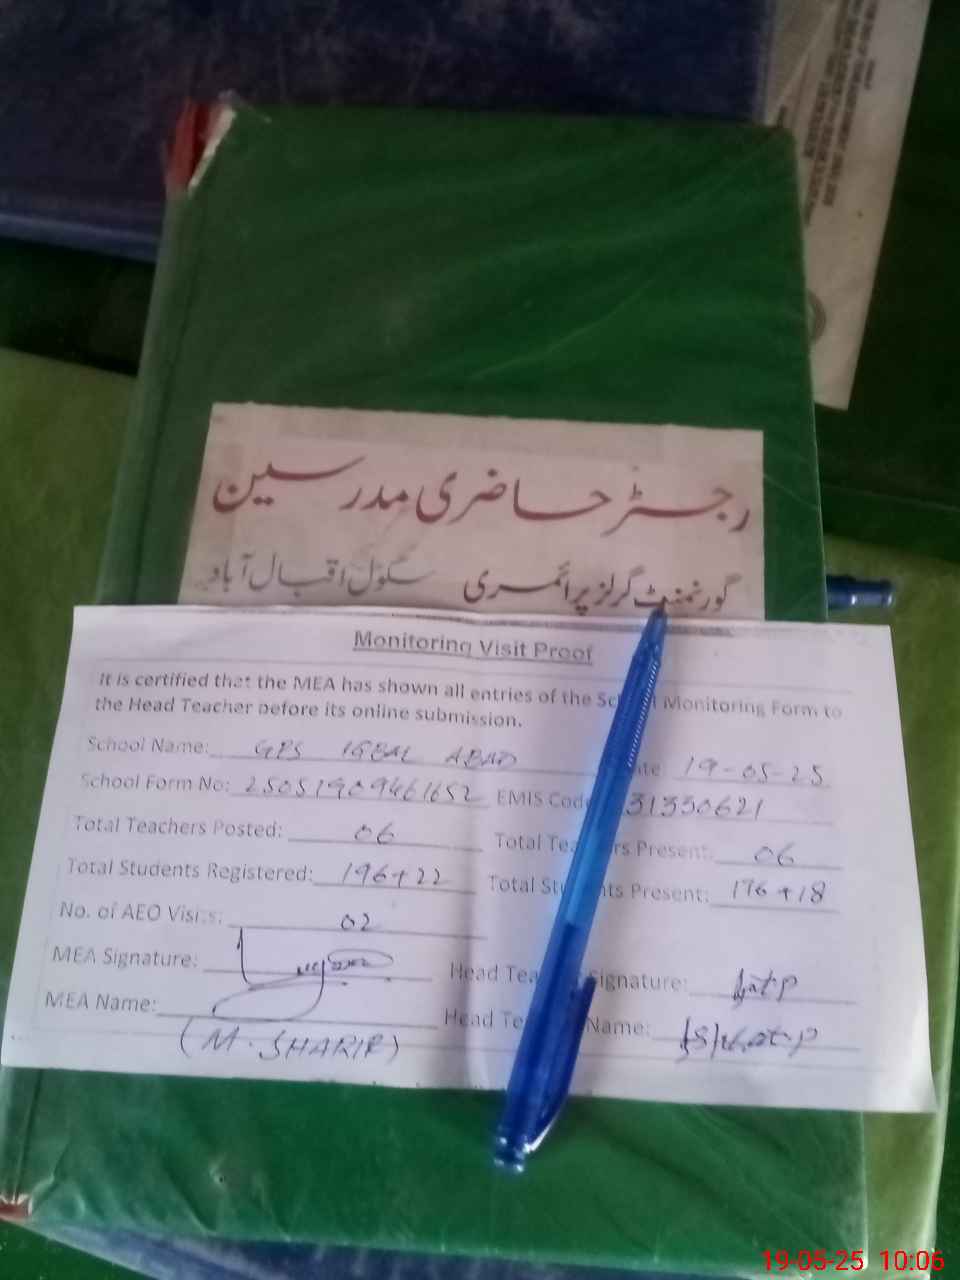 رجسٹر حاضری مدرسین
گورنمنٹ گرلز پرائمری سکول اقبال آباد
Monitoring Visit Proof
It is certified that the MEA has shown all entries of the School Monitoring Form to
the Head Teacher before its online submission.
School Name: GPS IQBAL ABAD Date: 19-05-25
School Form No: 25051909461652 EMIS Code 31330621
Total Teachers Posted: 06 Total Teachers Present: 06
Total Students Registered: 196+22 Total Students Present: 176+18
No. of AEO Visits: 02
MEA Signature: Head Teacher Signature:
MEA Name: Head Teacher Name:
(M. SHARIF)
19-05-25 10:06